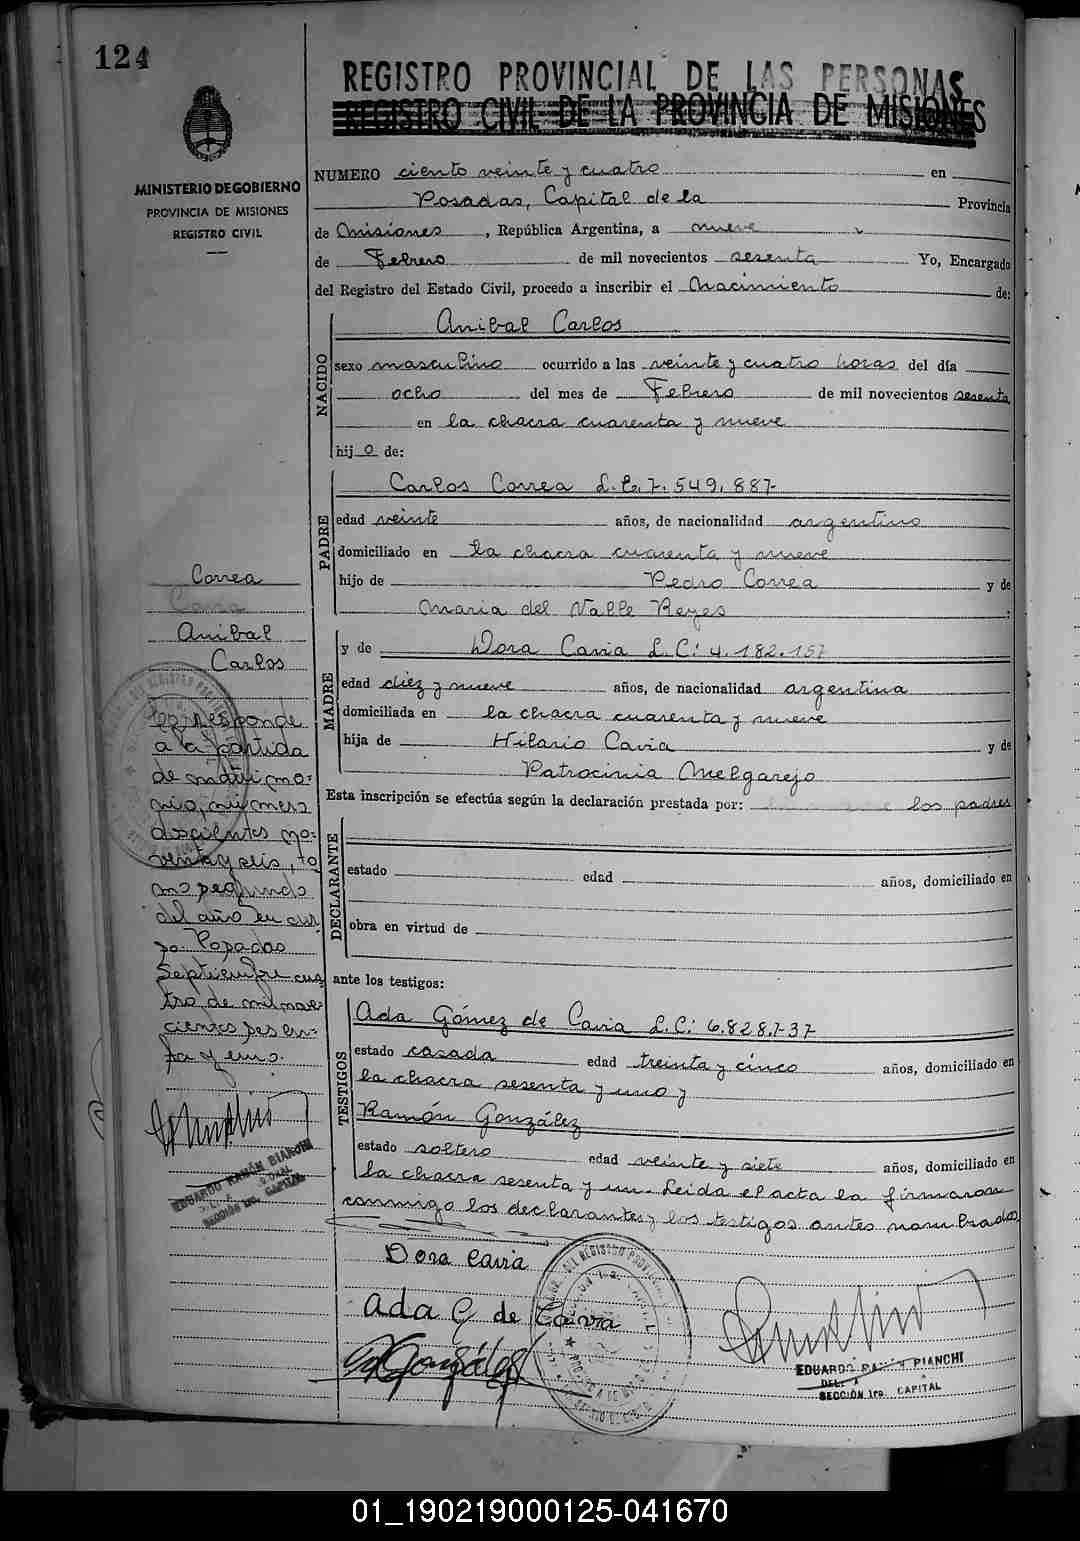 124
MINISTERIO DE GOBIERNO
PROVINCIA DE MISIONES
REGISTRO CIVIL
REGISTRO PROVINCIAL DE LAS PERSONAS
REGISTRO CIVIL DE LA PROVINCIA DE MISIONES
NUMERO ciento veinte y cuatro en
Posadas, Capital de la Provincia
de Misiones, República Argentina, a nueve
de Febrero de mil novecientos sesenta Yo, Encargado
del Registro del Estado Civil, procedo a inscribir el Nacimiento de:
NACIDO
Anibal Carlos
sexo masculino ocurrido a las veinte y cuatro horas del día
ocho del mes de Febrero de mil novecientos sesenta
en la chacra cuarenta y nueve
hijo de:
PADRE
Carlos Correa L.E. 7.549.887-
edad veinte años, de nacionalidad argentino
domiciliado en la chacra cuarenta y nueve
hijo de Pedro Correa y de
Maria del Valle Reyes
MADRE
y de Dora Cavia L.C: 4.182.157
edad diez y nueve años, de nacionalidad argentina
domiciliada en la chacra cuarenta y nueve
hija de Hilario Cavia y de
Patrocinia Melgarejo
Esta inscripción se efectúa según la declaración prestada por: los padres
DECLARANTE
estado edad años, domiciliado en
obra en virtud de
ante los testigos:
TESTIGOS
Ada Gómez de Cavia L.C: 6.828.737-
estado casada edad treinta y cinco años, domiciliado en
la chacra sesenta y uno y
Ramón González
estado soltero edad veinte y siete años, domiciliado en
la chacra sesenta y un. Leida el acta la firmaron
conmigo los declarantes y los testigos antes nombrados
Dora Cavia
Ada G de Cavia
González
EDUARDO RAMÓN BIANCHI
SECCIÓN 1ra. CAPITAL
Correa
Anibal
Carlos
responde
a la partida
de matrimo-
nio, número
doscientos no-
venta y seis, to
mo segundo
del año en cur
so. Posadas
Septiembre cua
tro de mil nove-
cientos sesen-
ta y uno.
EDUARDO RAMÓN BIANCHI
SECCIÓN 1ra. CAPITAL
01_190219000125-041670